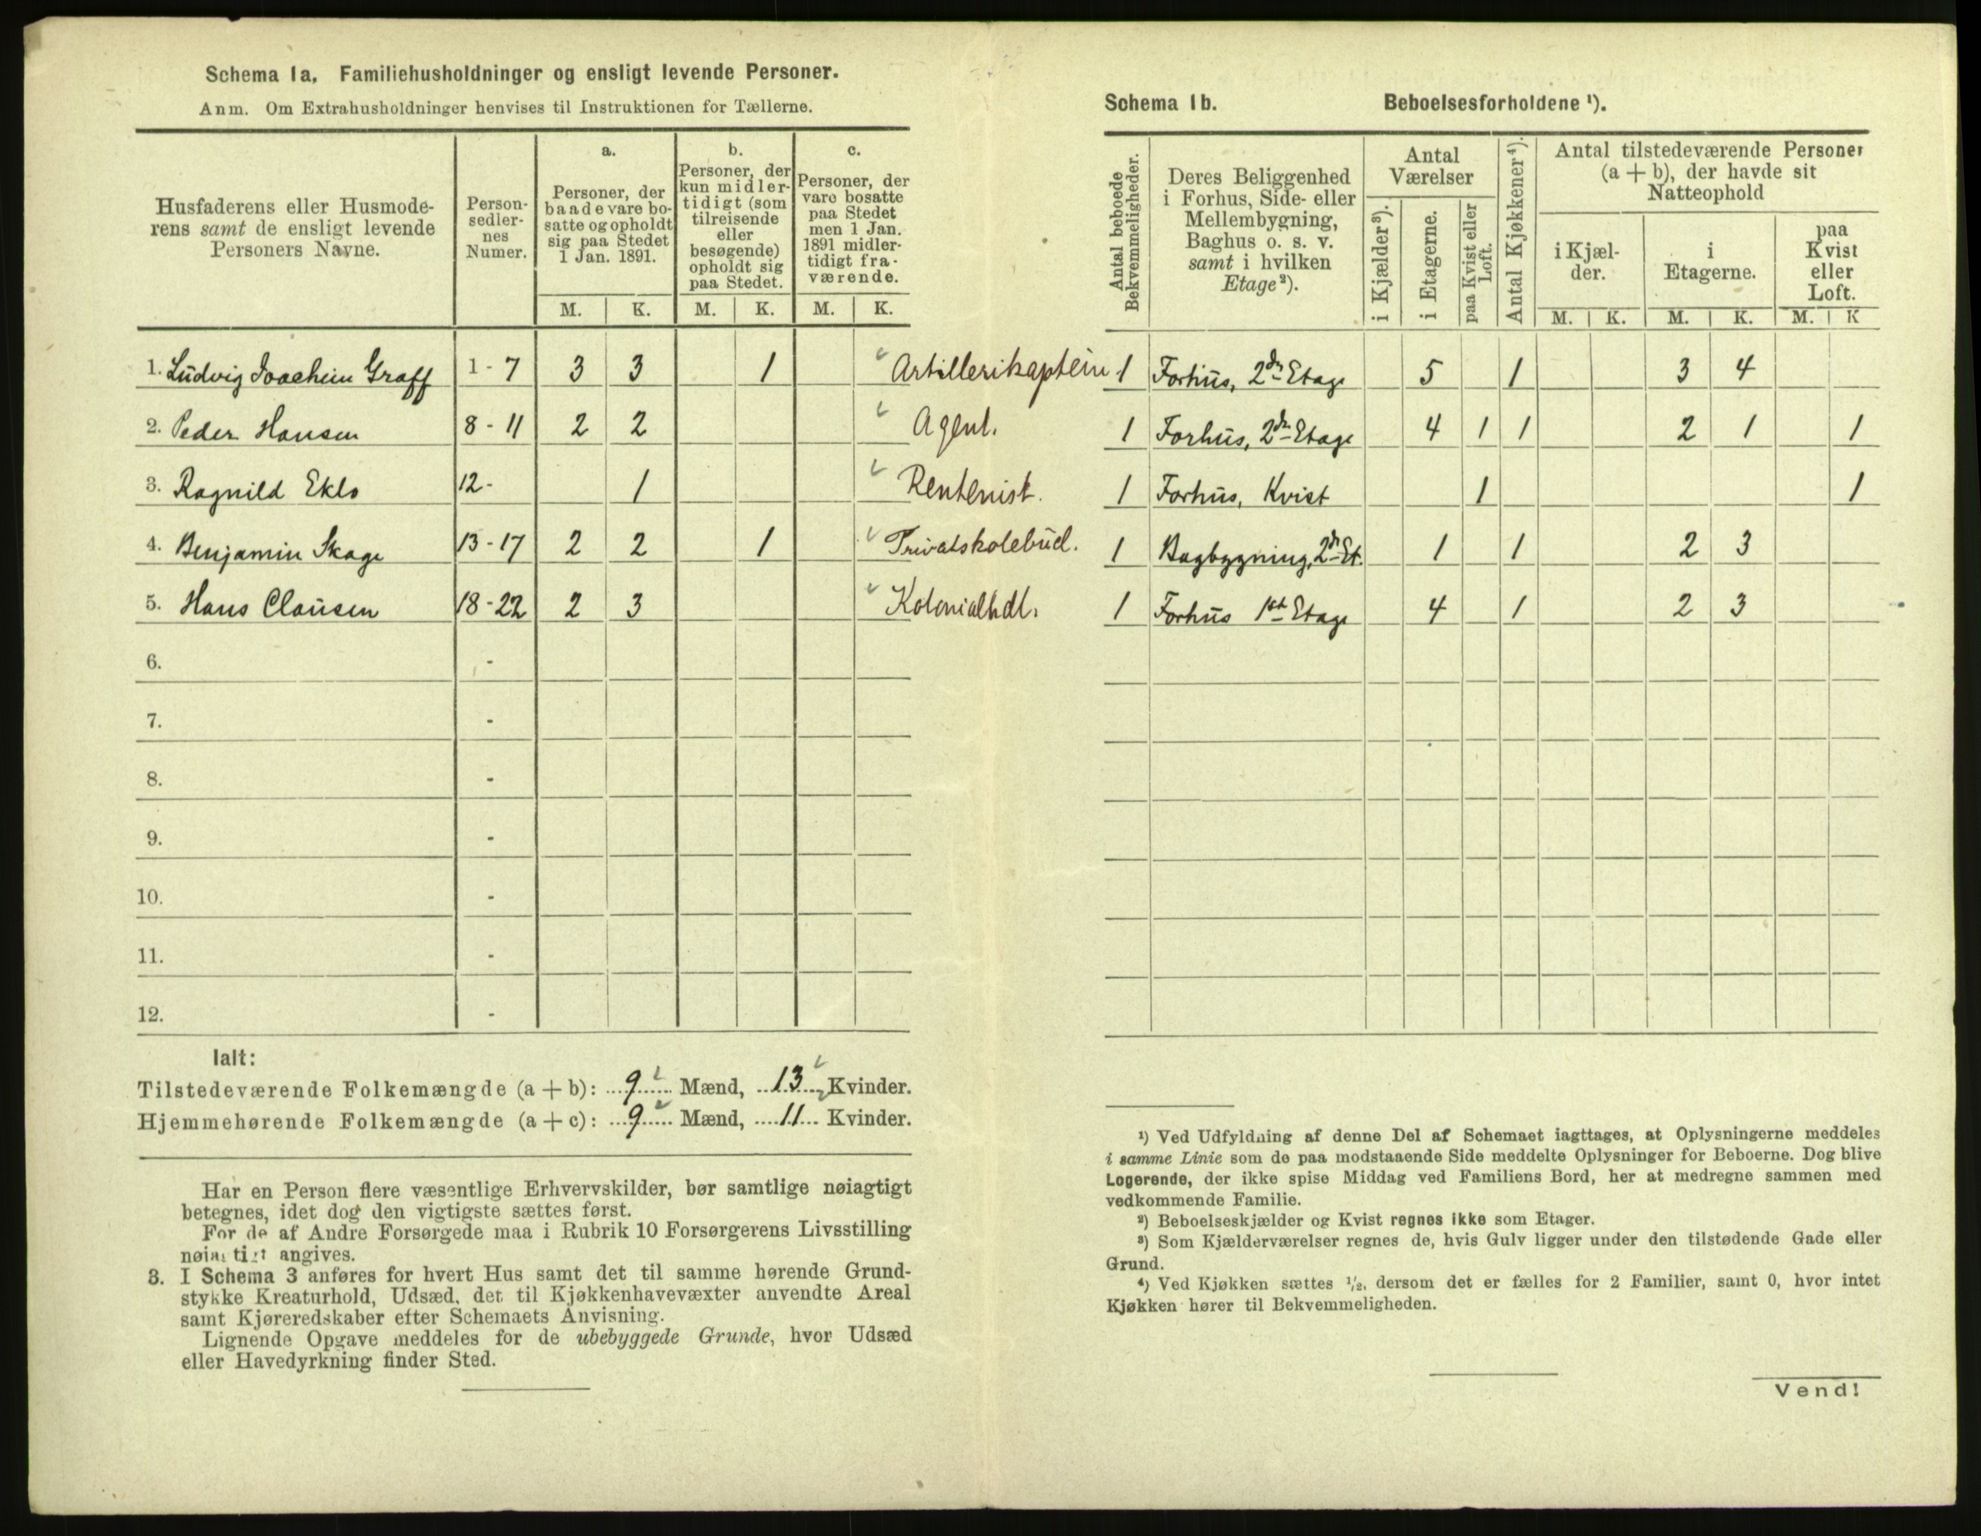 Schema 1a. Familiehusholdninger og ensligt levende Personer.
Anm. Om Extrahusholdninger henvises til Instruktionen for Tællerne.
Husfaderens eller Husmoderens samt de ensligt levende Personers Navne.
Personsedlernes Numer.
a.
Personer, der baade vare bosatte og opholdt sig paa Stedet 1 Jan. 1891.
b.
Personer, der kun midlertidigt (som tilreisende eller besøgende) opholdt sig paa Stedet.
c.
Personer, der vare bosatte paa Stedet men 1 Jan. 1891 midlertidigt fraværende.
M. K. M. K. M. K.
1. Ludvig Joachim Graff 1 - 7 3 3 1 Artillerikaptein
2. Peder Hansen 8 - 11 2 2 Agent.
3. Ragnild Eklo 12 - 1 Rentenist.
4. Benjamin Skage 13 - 17 2 2 1 Privatskolebud.
5. Hans Clausen 18 - 22 2 3 Kolonialhdl.
6. -
7. -
8. -
9. -
10. -
11. -
12. -
Ialt:
Tilstedeværende Folkemængde (a + b): 9 Mænd, 13 Kvinder.
Hjemmehørende Folkemængde (a + c): 9 Mænd, 11 Kvinder.
Har en Person flere væsentlige Erhvervskilder, bør samtlige nøiagtigt
betegnes, idet dog den vigtigste sættes først.
For de af Andre Forsørgede maa i Rubrik 10 Forsørgerens Livsstilling
nøiagtigt angives.
3. I Schema 3 anføres for hvert Hus samt det til samme hørende Grund-
stykke Kreaturhold, Udsæd, det til Kjøkkenhavevæxter anvendte Areal
samt Kjøreredskaber efter Schemaets Anvisning.
Lignende Opgave meddeles for de ubebyggede Grunde, hvor Udsæd
eller Havedyrkning finder Sted.
Schema 1b. Beboelsesforholdene ¹).
Antal beboede Bekvemmeligheder.
Deres Beliggenhed i Forhus, Side- eller Mellembygning, Baghus o. s. v. samt i hvilken Etage ²).
Antal Værelser
i Kjælder ³).
i Etagerne.
paa Kvist eller Loft.
Antal Kjøkkener ⁴).
Antal tilstedeværende Personer (a + b), der havde sit Natteophold
i Kjælder.
i Etagerne.
paa Kvist eller Loft.
M. K. M. K. M. K
1 Forhus, 2den Etage 5 1 3 4
1 Forhus, 2den Etage 4 1 1 2 1 1
1 Forhus, Kvist 1 1
1 Bagbygning, 2den Et. 1 1 2 3
1 Forhus 1ste Etage 4 1 2 3
¹) Ved Udfyldning af denne Del af Schemaet iagttages, at Oplysningerne meddeles
i samme Linie som de paa modstaaende Side meddelte Oplysninger for Beboerne. Dog blive
Logerende, der ikke spise Middag ved Familiens Bord, her at medregne sammen med
vedkommende Familie.
²) Beboelseskjælder og Kvist regnes ikke som Etager.
³) Som Kjælderværelser regnes de, hvis Gulv ligger under den tilstødende Gade eller
Grund.
⁴) Ved Kjøkken sættes ½, dersom det er fælles for 2 Familier, samt 0, hvor intet
Kjøkken hører til Bekvemmeligheden.
Vend!